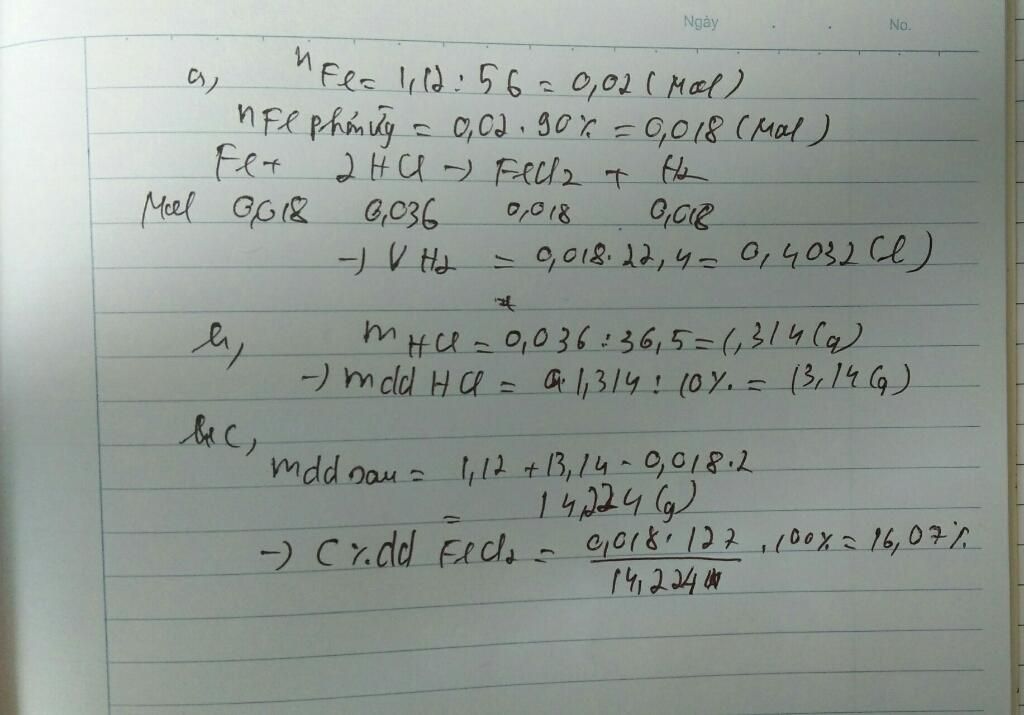 Ngày . . No.
a, nFe = 1,12 : 56 = 0,02 (Mol)
nFe phản ứng = 0,02 . 90% = 0,018 (Mol)
Fe + 2HCl → FeCl2 + H2
Mol 0,018 0,036 0,018 0,018
→ V H2 = 0,018. 22,4 = 0,4032 (l)
b, mHCl = 0,036 : 36,5 = 1,314 (g)
→ mdd HCl = 1,314 : 10% = 13,14 (g)
c,
mdd sau = 1,12 + 13,14 - 0,018.2
= 14,224 (g)
→ C%dd FeCl2 = 0,018 . 127 . 100% = 16,07%
14,224